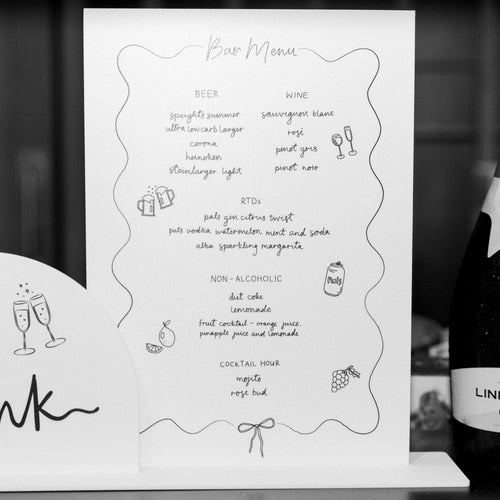 Bar Menu
BEER
speights summer
ultra low carb larger
corona
heineken
steinlarger light
WINE
sauvignon blanc
rosé
pinot gris
pinot noir
RTDs
pals gin citrus twist
pals vodka watermelon mint and soda
alba sparkling margarita
NON-ALCOHOLIC
diet coke
lemonade
fruit cocktail - orange juice,
pineapple juice and lemonade
COCKTAIL HOUR
mojito
rose bud
nk
LIN